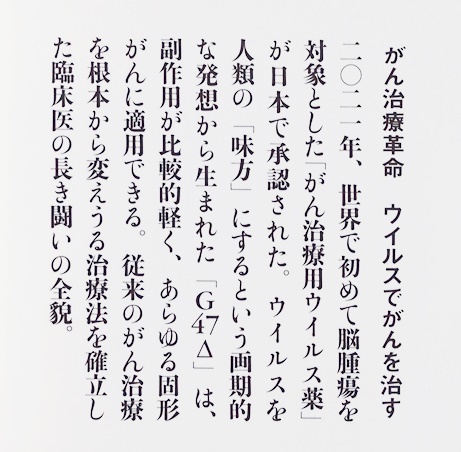 がん治療革命　ウイルスでがんを治す
二〇二一年、世界で初めて脳腫瘍を
対象とした「がん治療用ウイルス薬」
が日本で承認された。ウイルスを
人類の「味方」にするという画期的
な発想から生まれた「G47Δ」は、
副作用が比較的軽く、あらゆる固形
がんに適用できる。従来のがん治療
を根本から変えうる治療法を確立し
た臨床医の長き闘いの全貌。